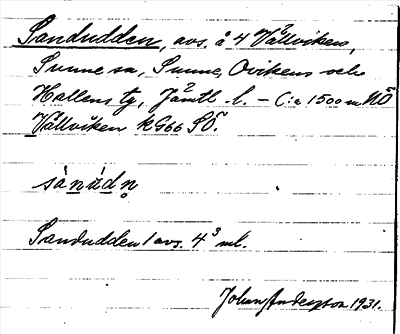 Sandudden, avs. å 4 Vållviken,
Sunne sn, Sunne, Ovikens och
Hallens tg, Jämtl. l. – C:a 1500 m NÖ
Vållviken k G66 SÖ.
sànúdn̥
Sandudden 1 avs. 4³ ml.
Johan Anderzson 1931.